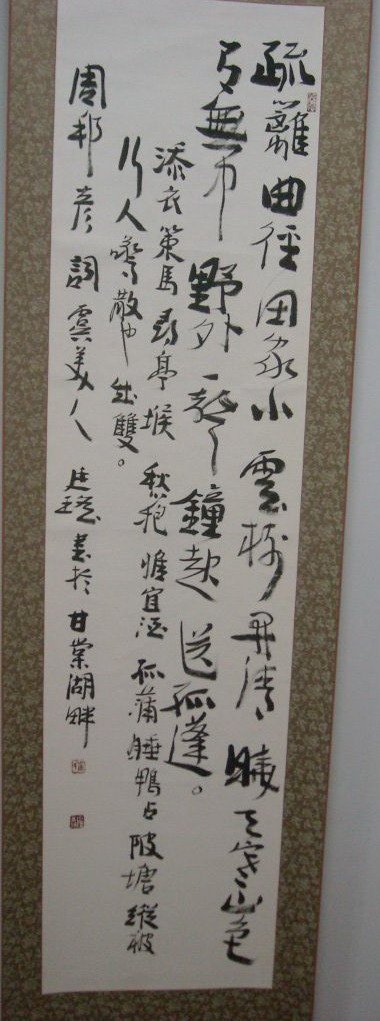 疏籬曲徑田家小雲樹開清曉天寒山色
有無中野外一聲鐘起送孤蓬。
添衣策馬尋亭堠愁抱惟宜酒孤蒲睡鴨占陂塘縱被
行人驚散又成雙。
周邦彥詞虞美人 書於甘棠湖畔